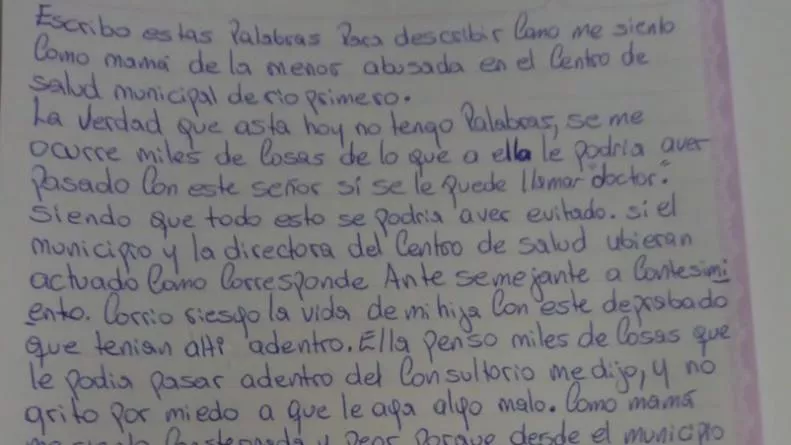 Escribo estas Palabras Para describir Como me siento
Como mamá de la menor abusada en el Centro de
salud municipal de rio primero.
La Verdad que asta hoy no tengo Palabras, se me
ocurre miles de Cosas de lo que a ella le podria aver
Pasado Con este señor si se le puede llamar "doctor".
Siendo que todo esto se podria aver evitado. si el
municipio y la directora del Centro de salud ubieran
actuado Como Corresponde Ante semejante a Contesimi
ento. Corrio riesgo la vida de mi hija Con este deprabado
que tenian alli adentro. Ella penso miles de Cosas que
le podia pasar adentro del Consultorio me dijo, y no
grito por miedo a que le aga algo malo. Como mamá
me siento Consternada y Peor Porque desde el municipio